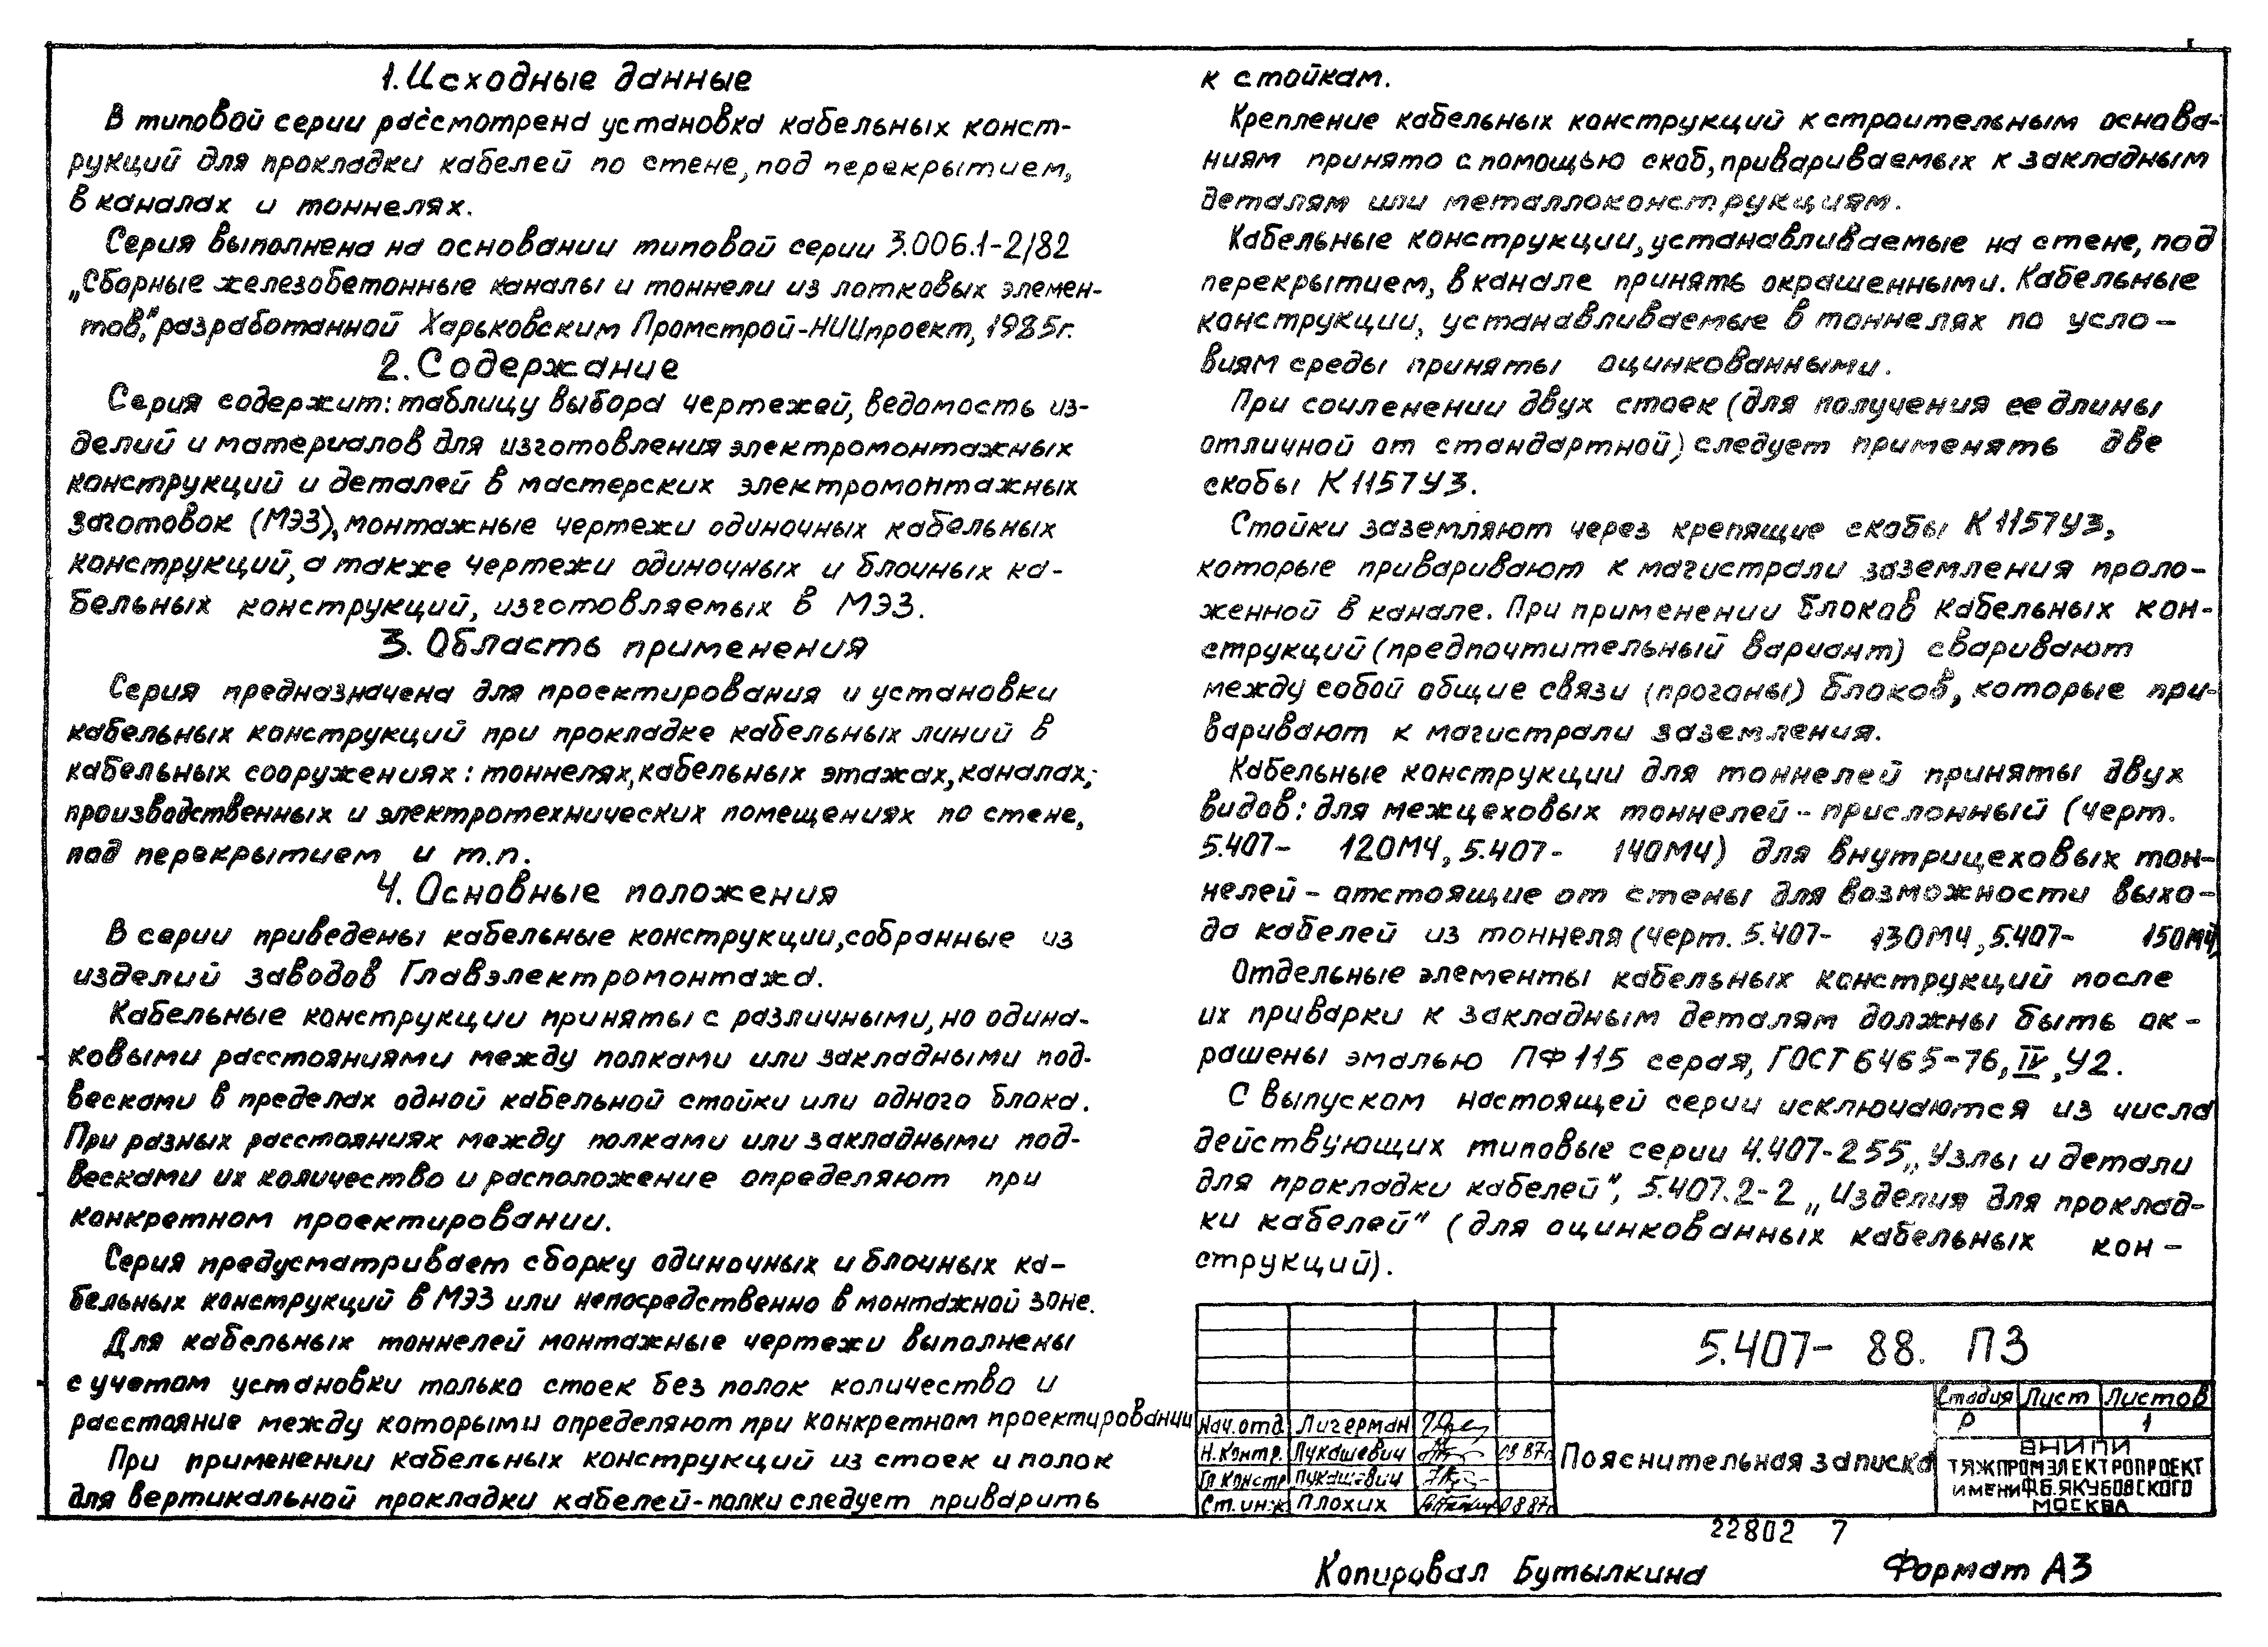 1. Исходные данные
В типовой серии рассмотрена установка кабельных конст-
рукций для прокладки кабелей по стене, под перекрытием,
в каналах и тоннелях.
Серия выполнена на основании типовой серии 3.006.1-2/82
„Сборные железобетонные каналы и тоннели из лотковых элемен-
тов," разработанной Харьковским Промстрой-НИИпроект, 1985г.
2. Содержание
Серия содержит: таблицу выбора чертежей, ведомость из-
делий и материалов для изготовления электромонтажных
конструкций и деталей в мастерских электромонтажных
заготовок (МЭЗ), монтажные чертежи одиночных кабельных
конструкций, а также чертежи одиночных и блочных ка-
бельных конструкций, изготовляемых в МЭЗ.
3. Область применения
Серия предназначена для проектирования и установки
кабельных конструкций при прокладке кабельных линий в
кабельных сооружениях: тоннелях, кабельных этажах, каналах;
производственных и электротехнических помещениях по стене,
под перекрытием и т.п.
4. Основные положения
В серии приведены кабельные конструкции, собранные из
изделий заводов Главэлектромонтажа.
Кабельные конструкции приняты с различными, но одина-
ковыми расстояниями между полками или закладными под-
весками в пределах одной кабельной стойки или одного блока.
При разных расстояниях между полками или закладными под-
весками их количество и расположение определяют при
конкретном проектировании.
Серия предусматривает сборку одиночных и блочных ка-
бельных конструкций в МЭЗ или непосредственно в монтажной зоне.
Для кабельных тоннелей монтажные чертежи выполнены
с учетом установки только стоек без полок количество и
расстояние между которыми определяют при конкретном проектировании
При применении кабельных конструкций из стоек и полок
для вертикальной прокладки кабелей-полки следует приварить
к стойкам.
Крепление кабельных конструкций к строительным основа-
ниям принято с помощью скоб, привариваемых к закладным
деталям или металлоконструкциям.
Кабельные конструкции, устанавливаемые на стене, под
перекрытием, в канале принять окрашенными. Кабельные
конструкции, устанавливаемые в тоннелях по усло-
виям среды приняты оцинкованными.
При сочленении двух стоек (для получения ее длины
отличной от стандартной) следует применять две
скобы К1157У3.
Стойки заземляют через крепящие скобы К1157У3,
которые приваривают к магистрали заземления проло-
женной в канале. При применении блоков кабельных кон-
струкций (предпочтительный вариант) сваривают
между собой общие связи (прогоны) блоков, которые при-
варивают к магистрали заземления.
Кабельные конструкции для тоннелей приняты двух
видов: для межцеховых тоннелей - прислонный (черт.
5.407- 120МЧ, 5.407- 140МЧ) для внутрицеховых тон-
нелей - отстоящие от стены для возможности выхо-
да кабелей из тоннеля (черт. 5.407- 130МЧ, 5.407- 150МЧ)
Отдельные элементы кабельных конструкций после
их приварки к закладным деталям должны быть ок-
рашены эмалью ПФ 115 серая, ГОСТ 6465-76, IV, У2.
С выпуском настоящей серии исключаются из числа
действующих типовые серии 4.407-255 „Узлы и детали
для прокладки кабелей", 5.407.2-2 „Изделия для проклад-
ки кабелей" (для оцинкованных кабельных кон-
струкций).
5.407- 88. ПЗ
Стадия Лист Листов
Р 1
Нач.отд. Лигерман
Н.контр. Лукашевич 09 87г
Гл.констр Лукашевич
Ст.инж Плохих 08 87г
Пояснительная записка
ВНИПИ
ТЯЖПРОМЭЛЕКТРОПРОЕКТ
имени Ф.Б.ЯКУБОВСКОГО
МОСКВА
22802 7
Копировал Бутылкина Формат А3